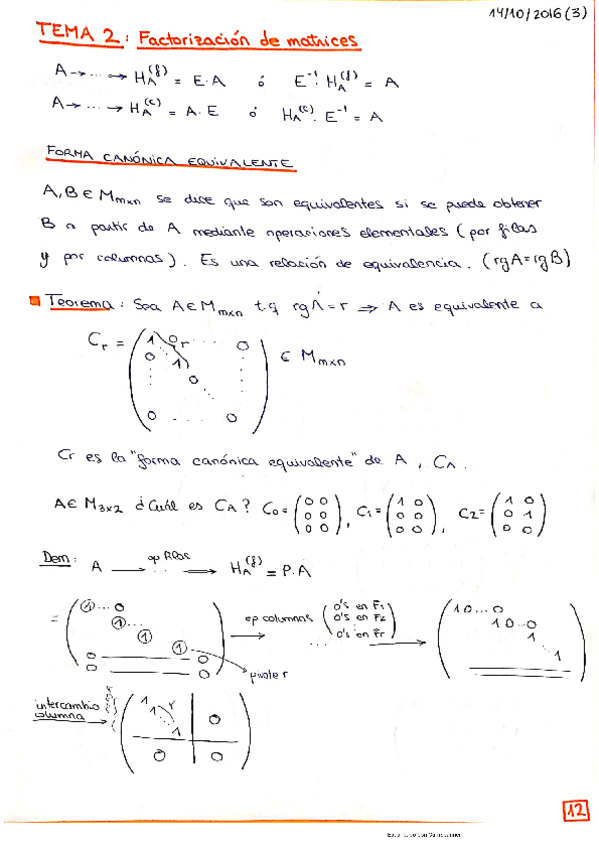 14/10/2016 (3)
TEMA 2: Factorización de matrices
A → ... → H_A^(f) = E·A ó E^-1·H_A^(f) = A
A → ... → H_A^(c) = A·E ó H_A^(c)·E^-1 = A
FORMA CANÓNICA EQUIVALENTE
A,B ∈ M_mxn se dice que son equivalentes si se puede obtener
B a partir de A mediante operaciones elementales (por filas
y por columnas). Es una relación de equivalencia. (rgA=rgB)
Teorema: Sea A ∈ M_mxn t.q rgA = r ⇒ A es equivalente a
C_r = ( 1 0 r ... 0
0 1 0
0
0 ... 0 ) ∈ M_mxn
Cr es la "forma canónica equivalente" de A, C_A.
A ∈ M_3x2 ¿Cuál es C_A? C_0 = (0 0 / 0 0 / 0 0), C_1 = (1 0 / 0 0 / 0 0), C_2 = (1 0 / 0 1 / 0 0)
Dem: A → op filas ... → H_A^(f) = P·A
= ( 1 ... 0
1 ...
1
1
0 0
0 0 ) pivote r
→ op columnas ( 0's en F1
0's en F2
...
0's en Fr ) →
( 1 0 ... 0
1 0 .. 0
1
1 )
intercambio
columna → ( 1 1 r 1 | 0
0 | 0 )
12